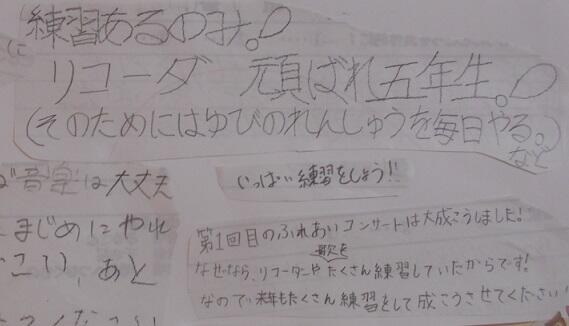 練習あるのみ。
リコーダ 頑ばれ五年生。
(そのためにはゆびのれんしゅうを毎日やる。)
など
音楽は大丈夫
まじめにやれ
あと
いっぱい練習をしよう!!
第1回目のふれあいコンサートは大成こうしました!
なぜなら、リコーダーや歌をたくさん練習していたからです!
なので来年もたくさん練習をして成こうさせてください!